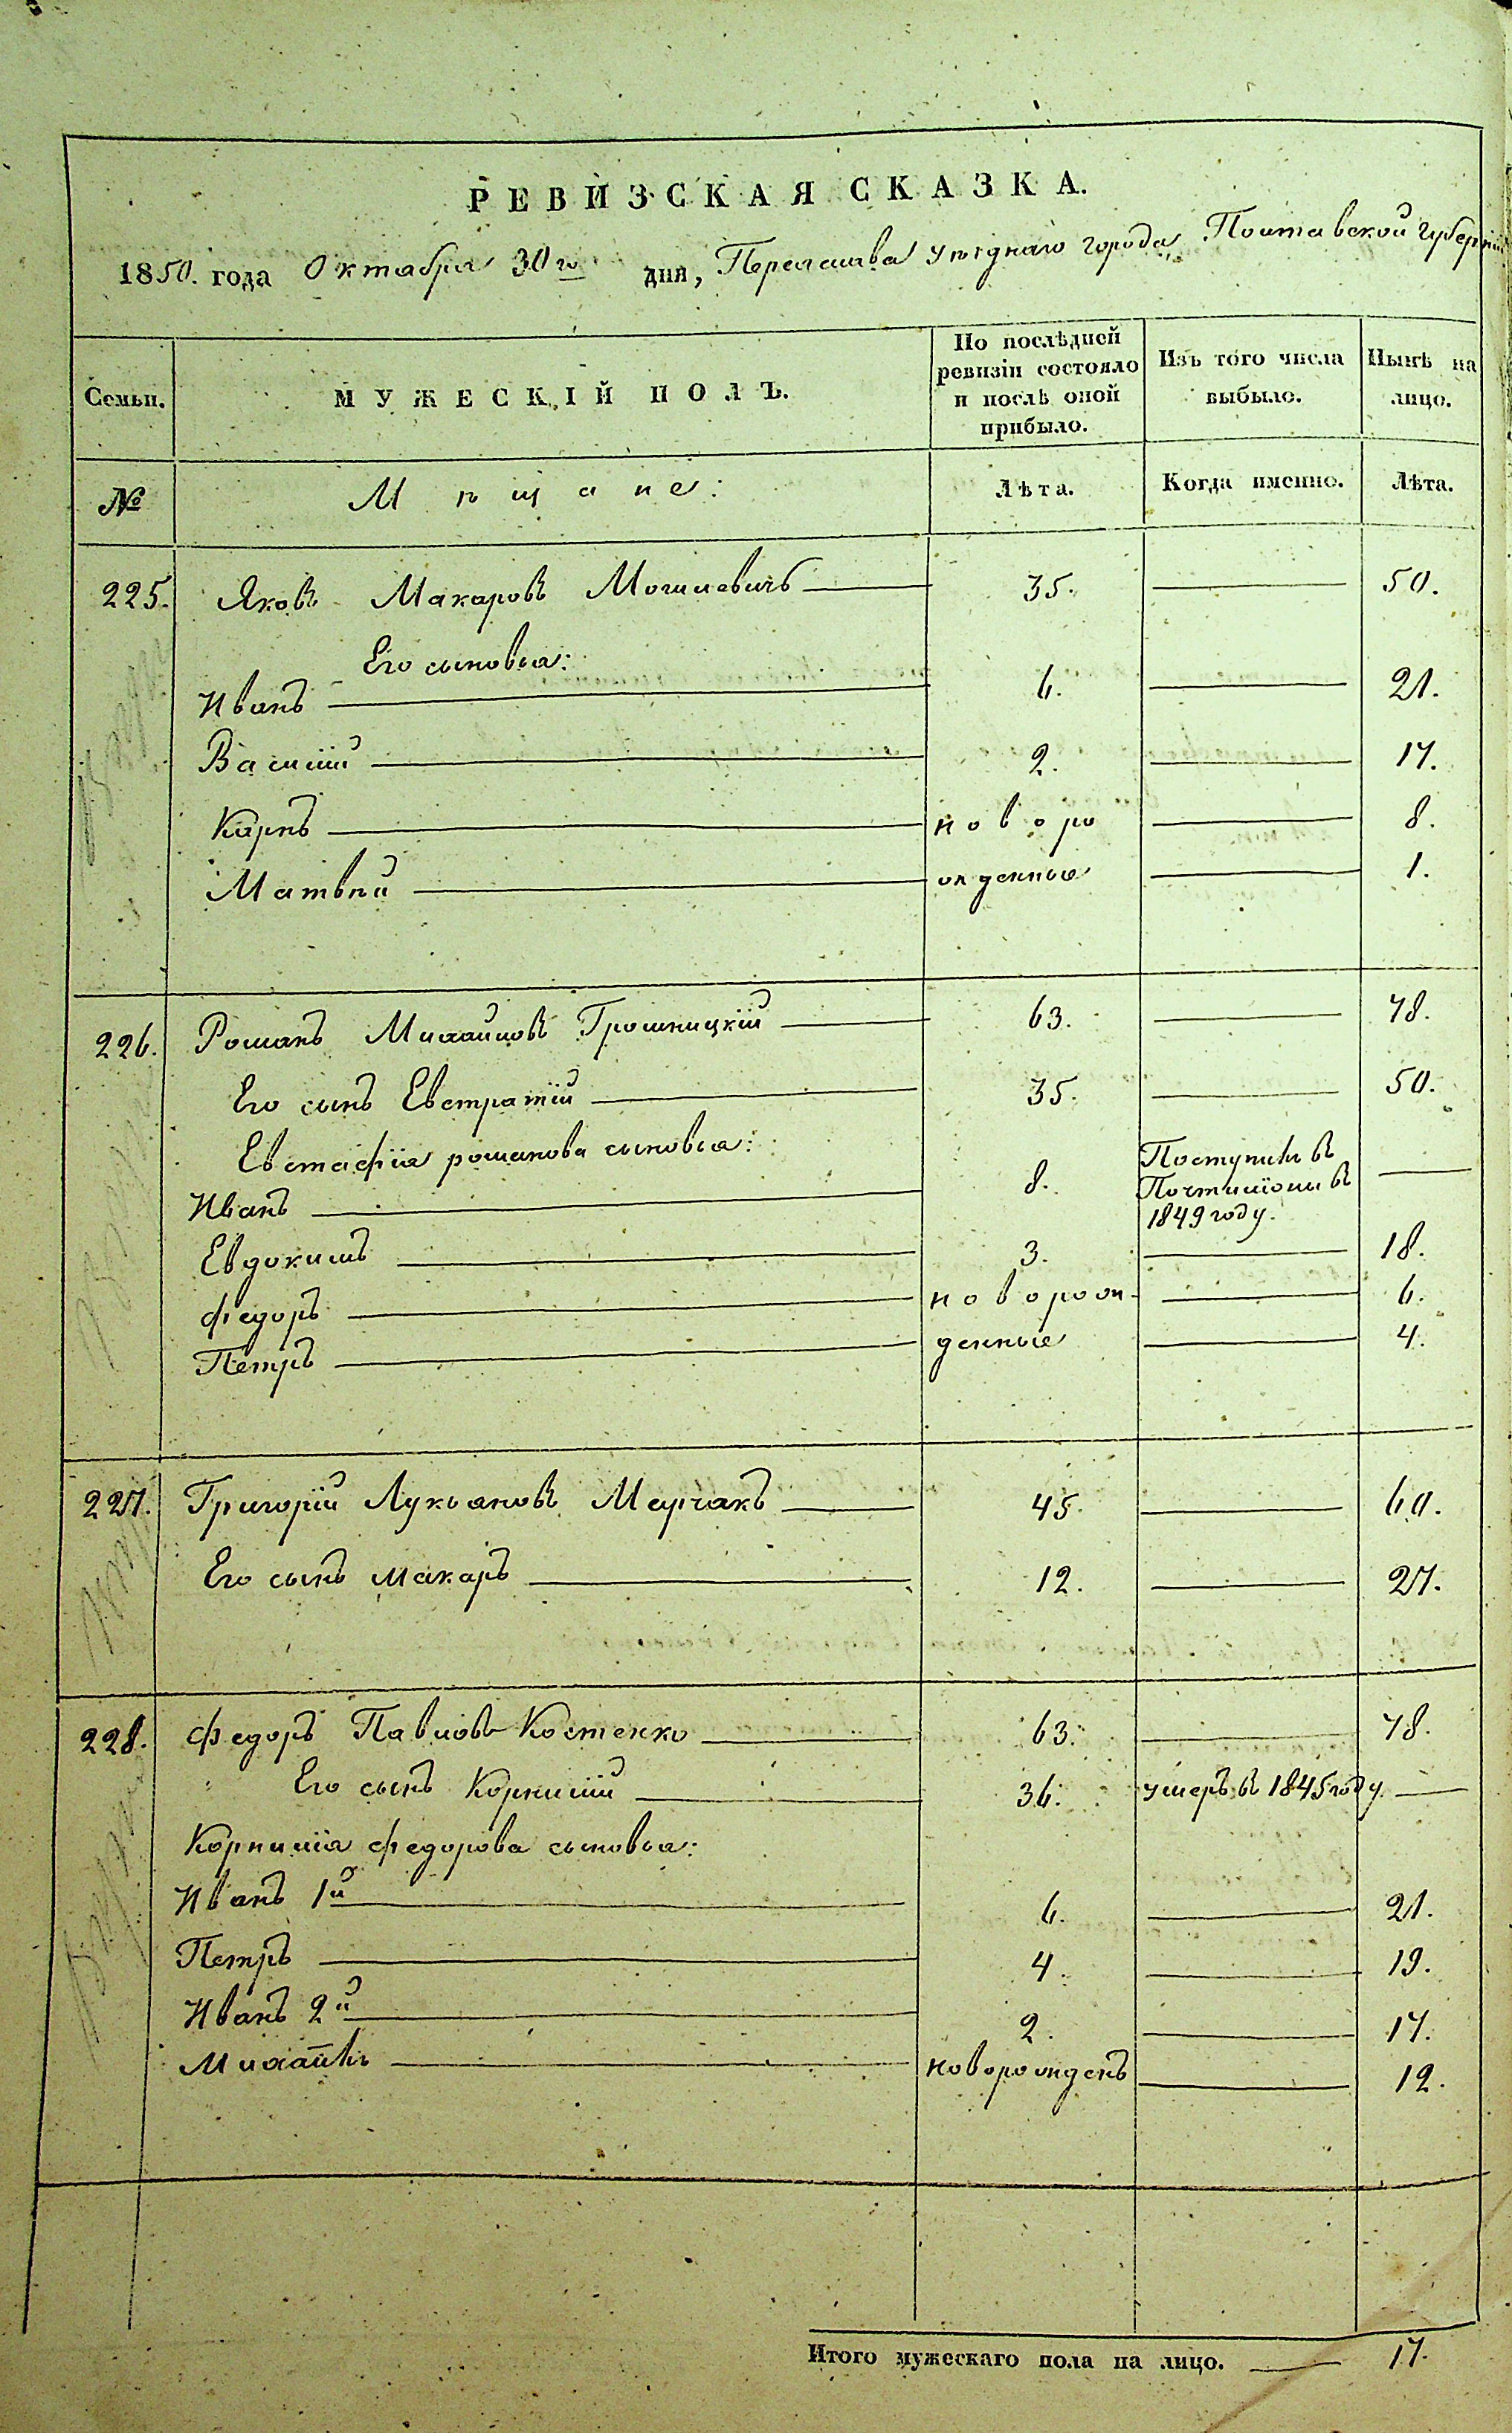 РЕВИЗСКАЯ СКАЗКА.
1850. года Октября 30го дня, Переяслава уѣзднаго города, Полтавской губерніи
Семьи.
МУЖЕСКІЙ ПОЛЪ.
По послѣдней ревизіи состояло и послѣ оной прибыло.
Изъ того числа выбыло.
Нынѣ на лицо.
№ Мѣщане: Лѣта. Когда именно. Лѣта.
225. Яковъ Макаровъ Могилевичъ 35. 50.
Его сыновья:
Иванъ 6. 21.
Василій 2. 17.
Карпъ новоро 8.
Матвѣй жденные 1.
226. Романъ Михайловъ Грошницкій 63. 78.
Его сынъ Евстратій 35. 50.
Евстафія романова сыновья:
Иванъ 8. Поступилъ въ Почтиліоны въ 1849 году.
Евдокимъ 3. 18.
Федоръ new­ 6.
Петръ денные 4.
227. Григорій Лукьяновъ Мерчакъ 45. 60.
Его сынъ Макаръ 12. 27.
228. Федоръ Павловъ Костенко 63. 78.
Его сынъ Корнилій 36. умеръ въ 1845 году.
Корнилія Федорова сыновья:
Иванъ 1й 6. 21.
Петръ 4. 19.
Иванъ 2й 2. 17.
Михаилъ новорожденъ 12.
Итого мужескаго пола на лицо. 17.